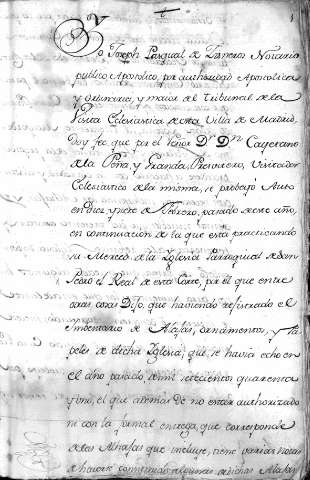 Yo Joseph Pasqual de Notario
publico Apostolico, por authoridad Apostolica
y ordinaria, y maior del tribunal de la
Visita Eclesiastica de esta Villa de Madrid,
doy fee que por el Señor Dr. Dn. Cayetano
de la Peña, y Granda, Presvitero, Visitador
Eclesiastico de la misma, se probeyó Auto
en Diez, y siete de Febrero, pasado de este año,
en continuacion de la que esta practicando
su Merced de la Yglesia Parroquial de San
Pedro el Real de esta Corte, por el que entre
otras cosas Dijo que haviendo rejistrado el
Imbentario de Alajas, ornamentos, y Pa
peles de dicha Yglesia, que se havia echo en
el año pasado de mil setecientos quarenta
y uno, el que ademas de no estar authorizado
ni con la formal entrega, que corresponde
de las Alhajas que incluye, tiene varias notas
de haverse algunas de dichas Alajas